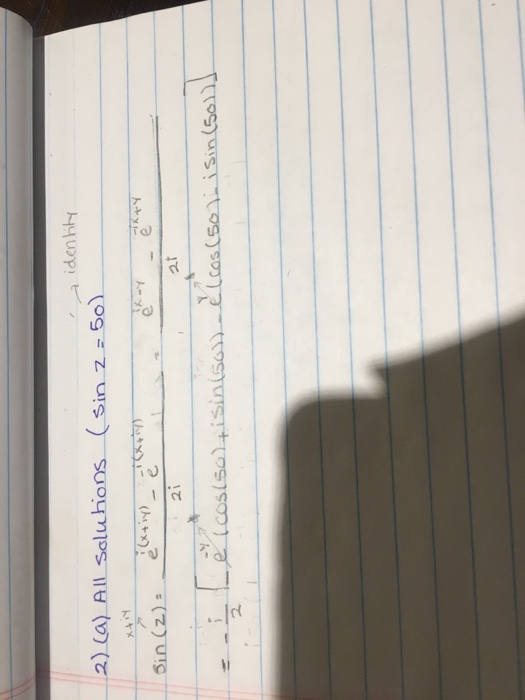 → identity
2) (a) All solutions (sin z = 50)
x+iy
sin(z) = e^{i(x+iy)} - e^{-i(x+iy)} / 2i = e^{ix-y} - e^{-ix+y} / 2i
= -i/2 [e^{-y}(cos(50)+isin(50)) - e^{y}(cos(50)-isin(50))]